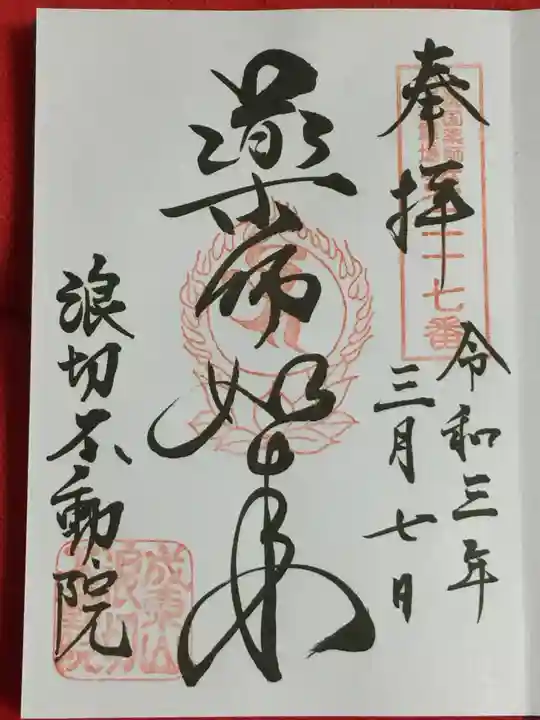 奉拝
二十七番
令和三年
三月七日
薬師如来
浪切不動院
成東山